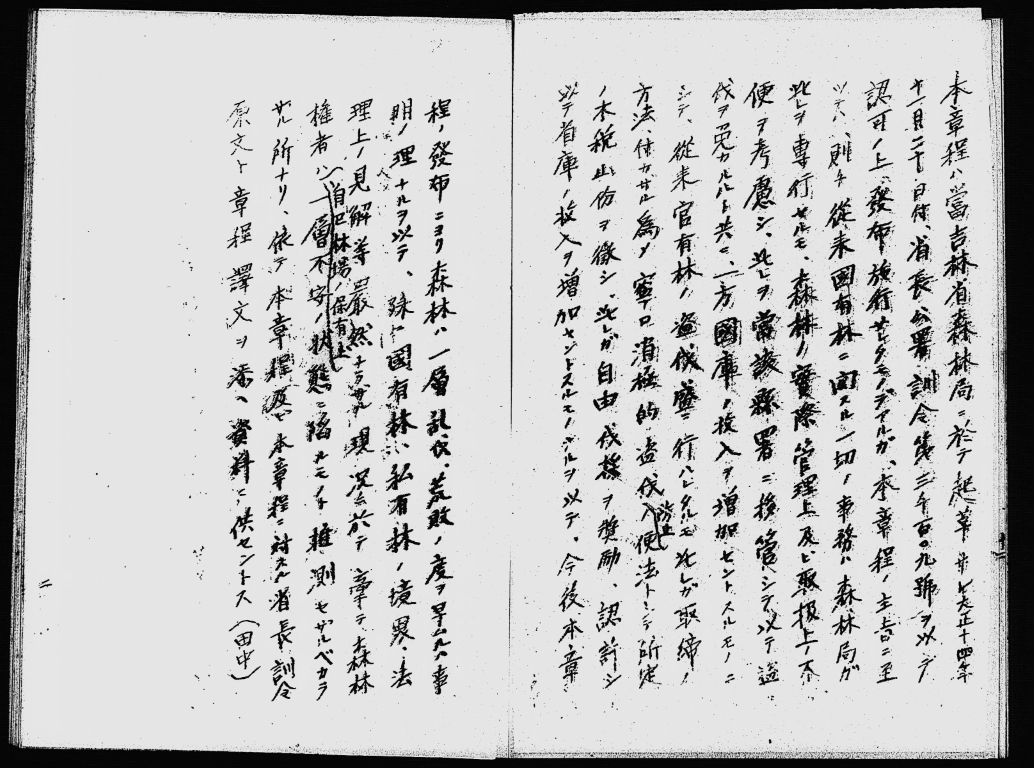 本章程ハ當吉林省森林局ニ於テ起草サレ大正十四年
十一月二十日付、省長公署訓令第三千百〇九號ヲ以テ
認可ノ上、發布施行サレタモノデアルガ、本章程ノ主旨ニ至
ツテハ、則チ從来國有林ニ関スル一切ノ事務ハ森林局ガ
此レヲ專行セルモ、森林ノ實際管理上及ビ取扱上ノ不
便ヲ考慮シ、此レヲ當該縣署ニ移管シテ以テ盗
伐ヲ免カルルト共ニ、一方國庫ノ收入ヲ増加セントスルモノニ
シテ、從来官有林ノ盗伐盛ニ行ハレタルモ此レガ取締ノ
方法、付カザル為メ寧ロ消極的盗伐防止便法トシテ所定
ノ木税山份ヲ徴シ、此レガ自由伐採ヲ奨励、認許シ
以テ省庫ノ收入ヲ増加セントスルモノナルヲ以テ、今後本章
程ノ發布ニヨリ森林ハ一層乱伐、荒敗ノ度ヲ早ムルハ事
明ノ理ナルヲ以テ、殊ニ國有林、私有林ノ境界、法
理上ノ見解等嚴然ナラザル現況ニ於テ牽テ森林
權者ハ自己林場ノ保有上一層不安ノ状態ニ陥ルモノト推測セザルベカラ
ザル所ナリ、依テ本章程及ビ本章程ニ対スル省長訓令
原文ト章程譯文ヲ添ヘ資料ニ供セントス(田中)
二